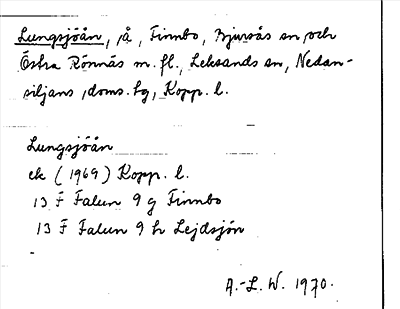 Lungsjöån, å, Finnbo, Bjursås sn och
Östra Rönnäs m. fl., Leksands sn, Nedan-
siljans doms. hg, Kopp. l.
Lungsjöån
ek (1969) Kopp. l.
13 F Falun 9 g Finnbo
13 F Falun 9 h Lejdsjön
A.-L. W. 1970.